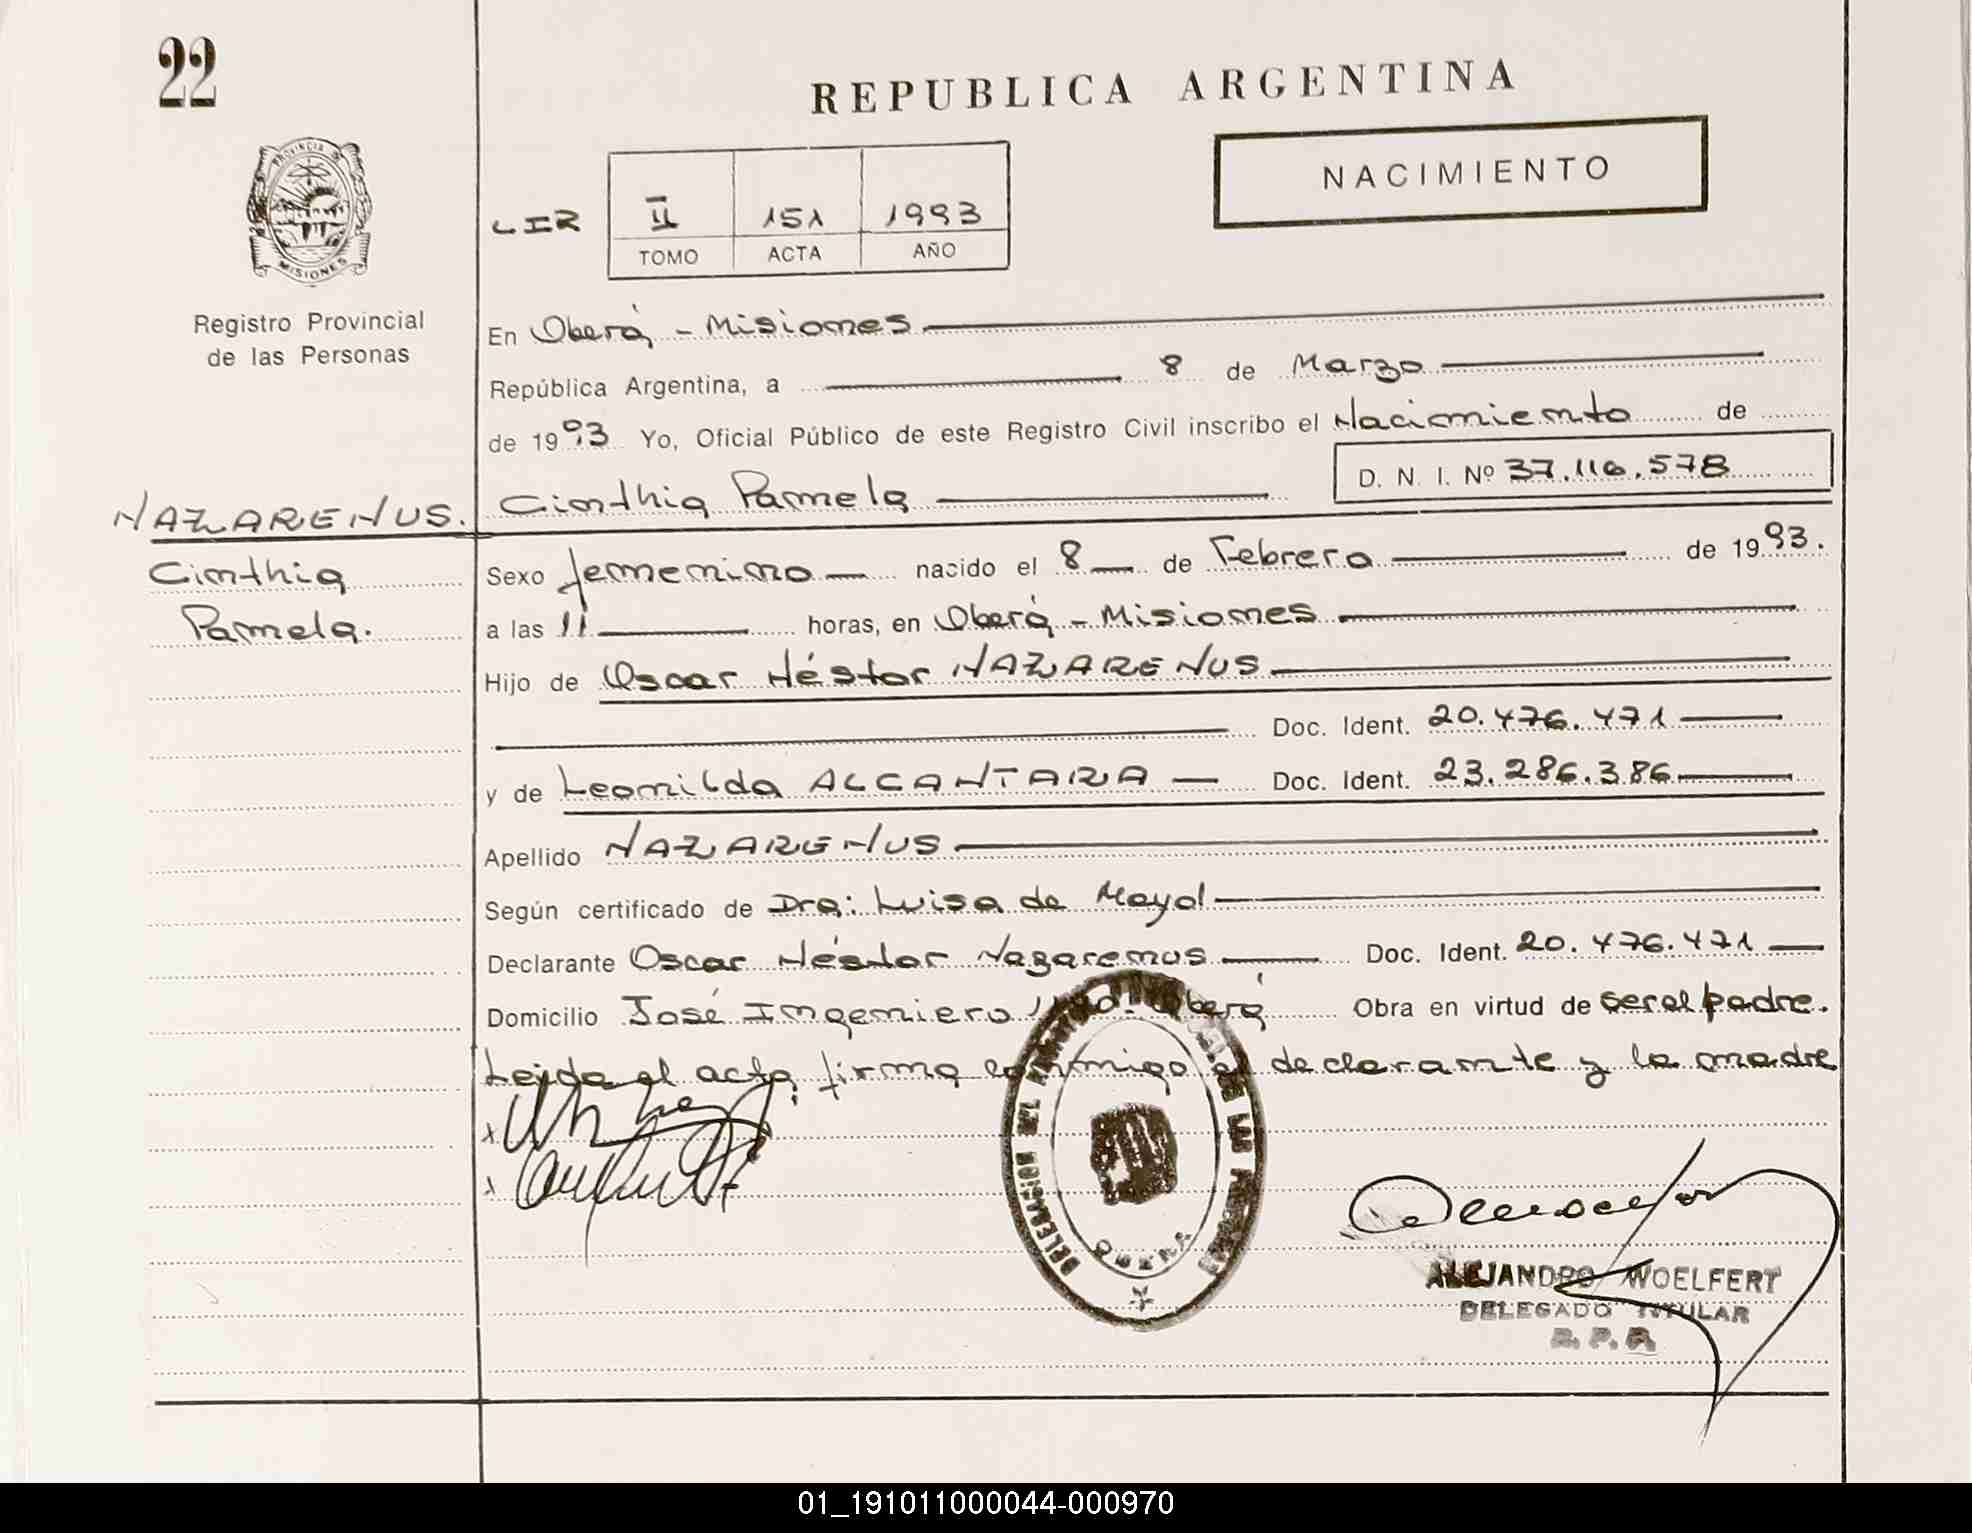 22
REPUBLICA ARGENTINA
PROVINCIA DE
MISIONES
Registro Provincial
de las Personas
NACIMIENTO
LIR II 151 1993
TOMO ACTA AÑO
En Oberá - Misiones
República Argentina, a 8 de Marzo
de 1993 Yo, Oficial Público de este Registro Civil inscribo el Nacimiento de
D. N. I. Nº 37.116.578
NAZARENUS. Cinthia Pamela
Cinthia
Pamela.
Sexo femenino nacido el 8 de Febrero de 1993.
a las 11 horas, en Oberá - Misiones
Hijo de Oscar Héstor NAZARENUS
Doc. Ident. 20.476.471
y de Leonilda ALCANTARA Doc. Ident. 23.286.386
Apellido NAZARENUS
Según certificado de Dra: Luisa de Mayol
Declarante Oscar Héstor Nazarenus Doc. Ident. 20.476.471
Domicilio José Ingeniero Oberá Obra en virtud de ser el padre.
Leída el acta, firma conmigo el declarante y la madre
x
x
OBERA
ALEJANDRO WOELFERT
DELEGADO TITULAR
R. P. P.
01_191011000044-000970